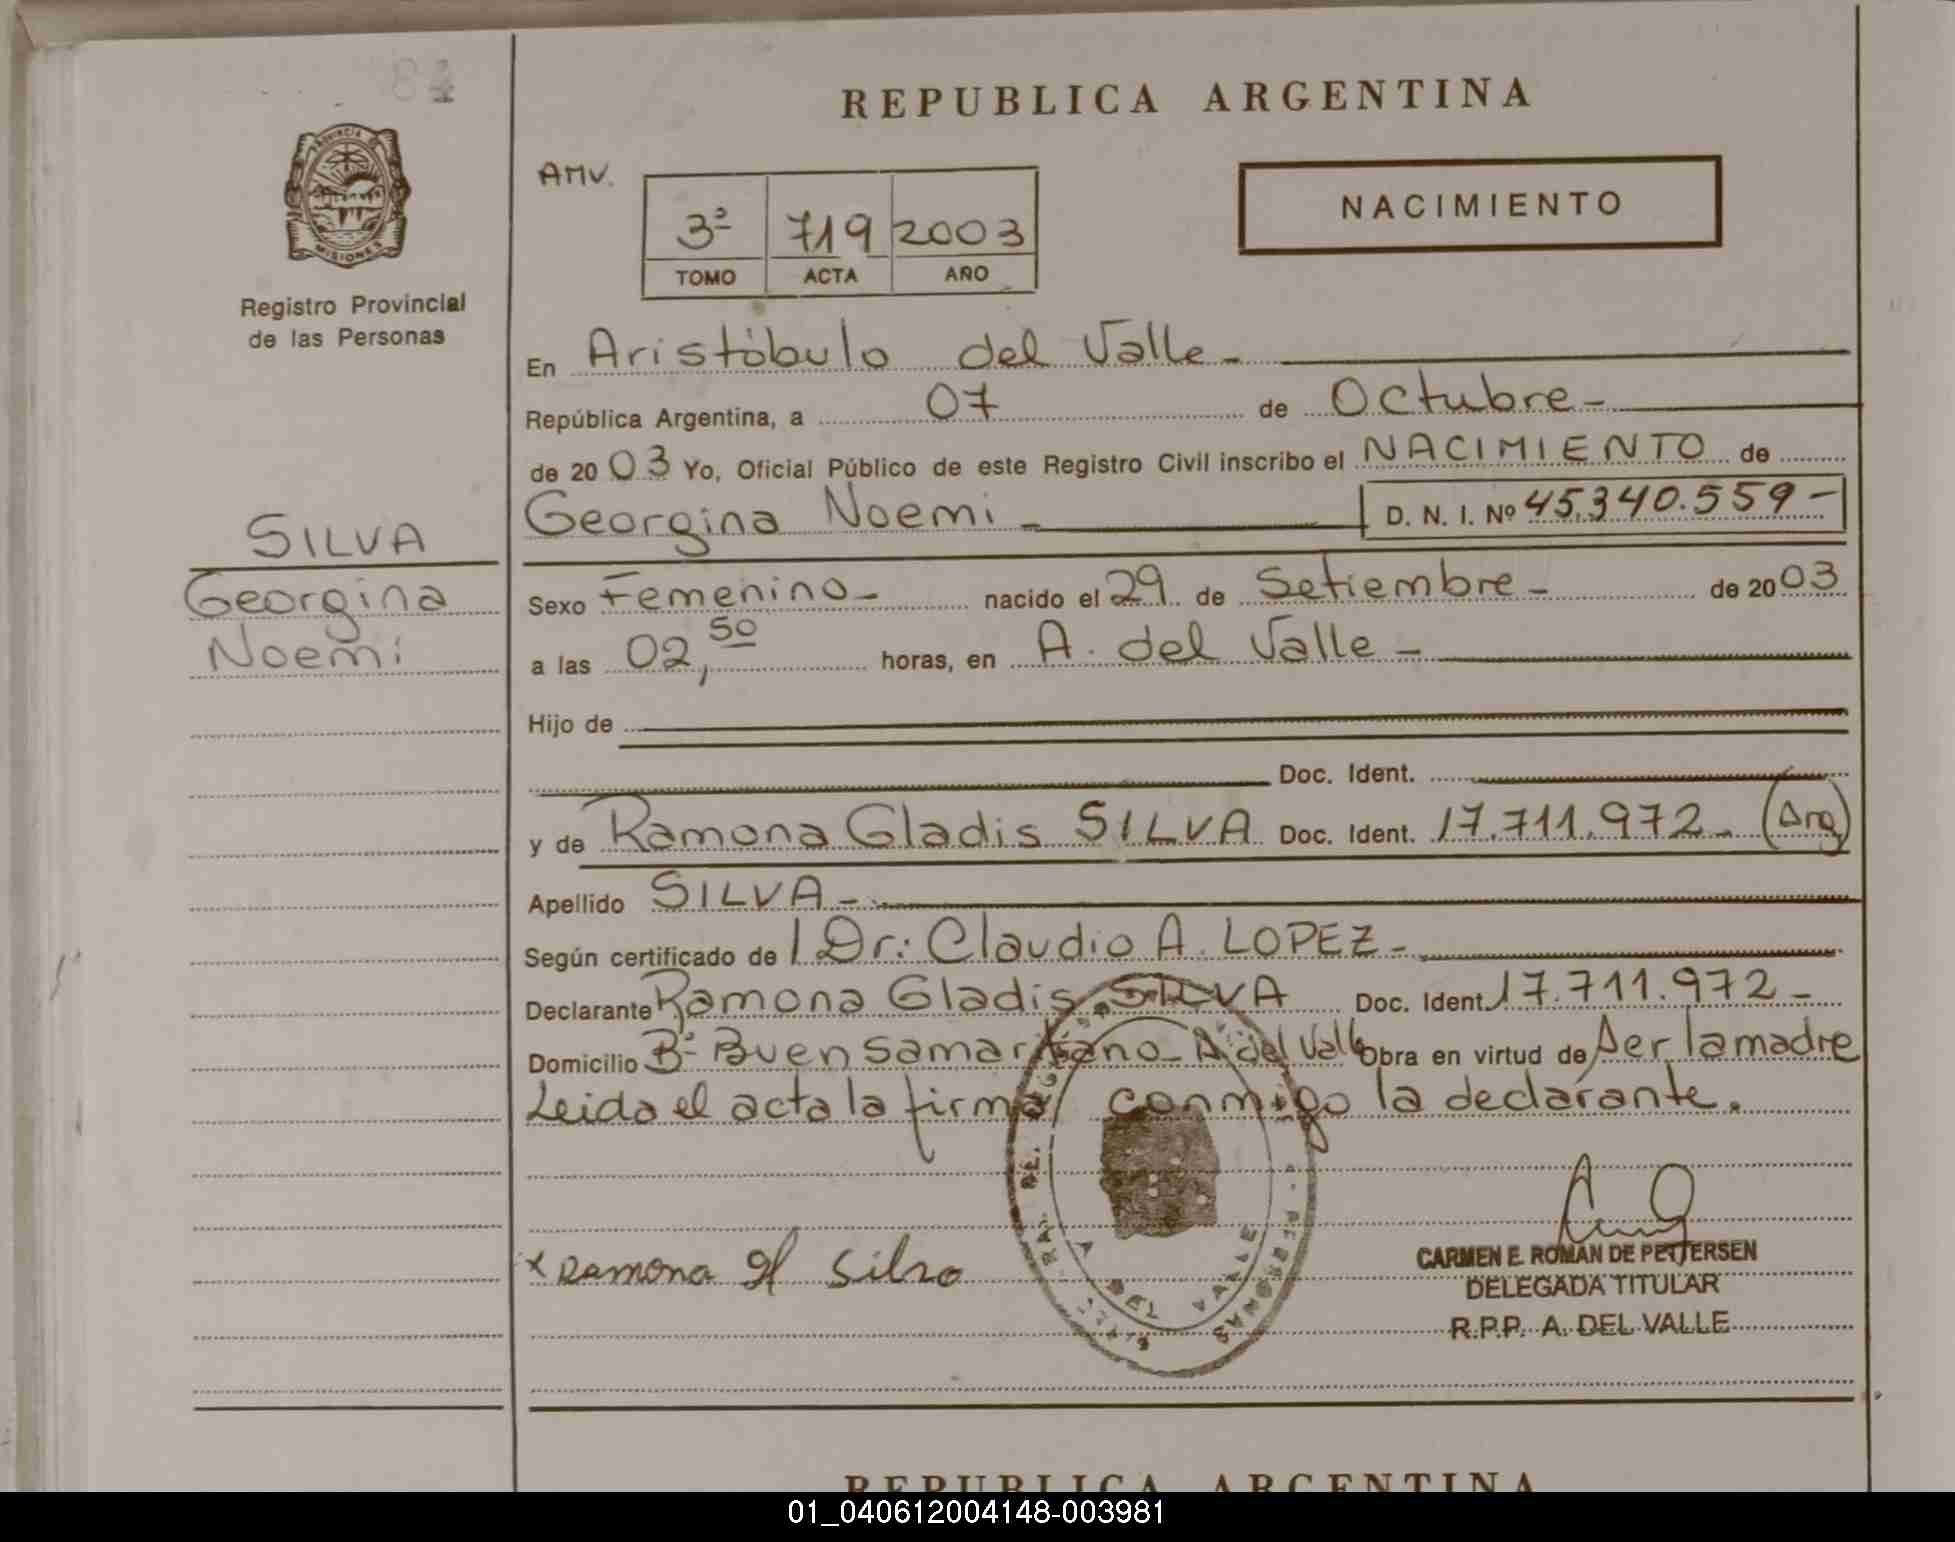 84
REPUBLICA ARGENTINA
PROVINCIA DE
MISIONES
Registro Provincial
de las Personas
AMV.
3º 719 2003
TOMO ACTA AÑO
NACIMIENTO
En Aristóbulo del Valle -
República Argentina, a 07 de Octubre -
de 20 03 Yo, Oficial Público de este Registro Civil inscribo el NACIMIENTO de
Georgina Noemi - D. N. I. Nº 45.340.559 -
SILVA
Georgina
Noemi
Sexo Femenino - nacido el 29 de Setiembre - de 20 03
a las 02,50 horas, en A. del Valle -
Hijo de
Doc. Ident.
y de Ramona Gladis SILVA Doc. Ident. 17.711.972 - (Arg)
Apellido SILVA -
Según certificado de l Dr: Claudio A. LOPEZ -
Declarante Ramona Gladis SILVA Doc. Ident. 17.711.972 -
Domicilio Bº Buen Samaritano - A. del Valle Obra en virtud de ser la madre
Leida el acta la firma conmigo la declarante.
x Ramona Gl Silva
DEL VALLE
PERSONAS
CARMEN E. ROMAN DE PETTERSEN
DELEGADA TITULAR
R.P.P. A. DEL VALLE
REPUBLICA ARGENTINA
01_040612004148-003981